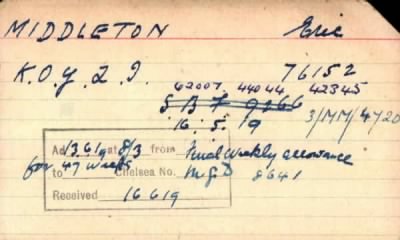 MIDDLETON Eric
K.O.Y.L.I. 76152
62007. 44044 42345
5 B 7 9266
16.5.19 3/MM/4720
Ad 13.6.19 at 8/3 from Final Weekly allowance
for 47 weeks to Chelsea No. M.G.D 8641
Received 16 6 19